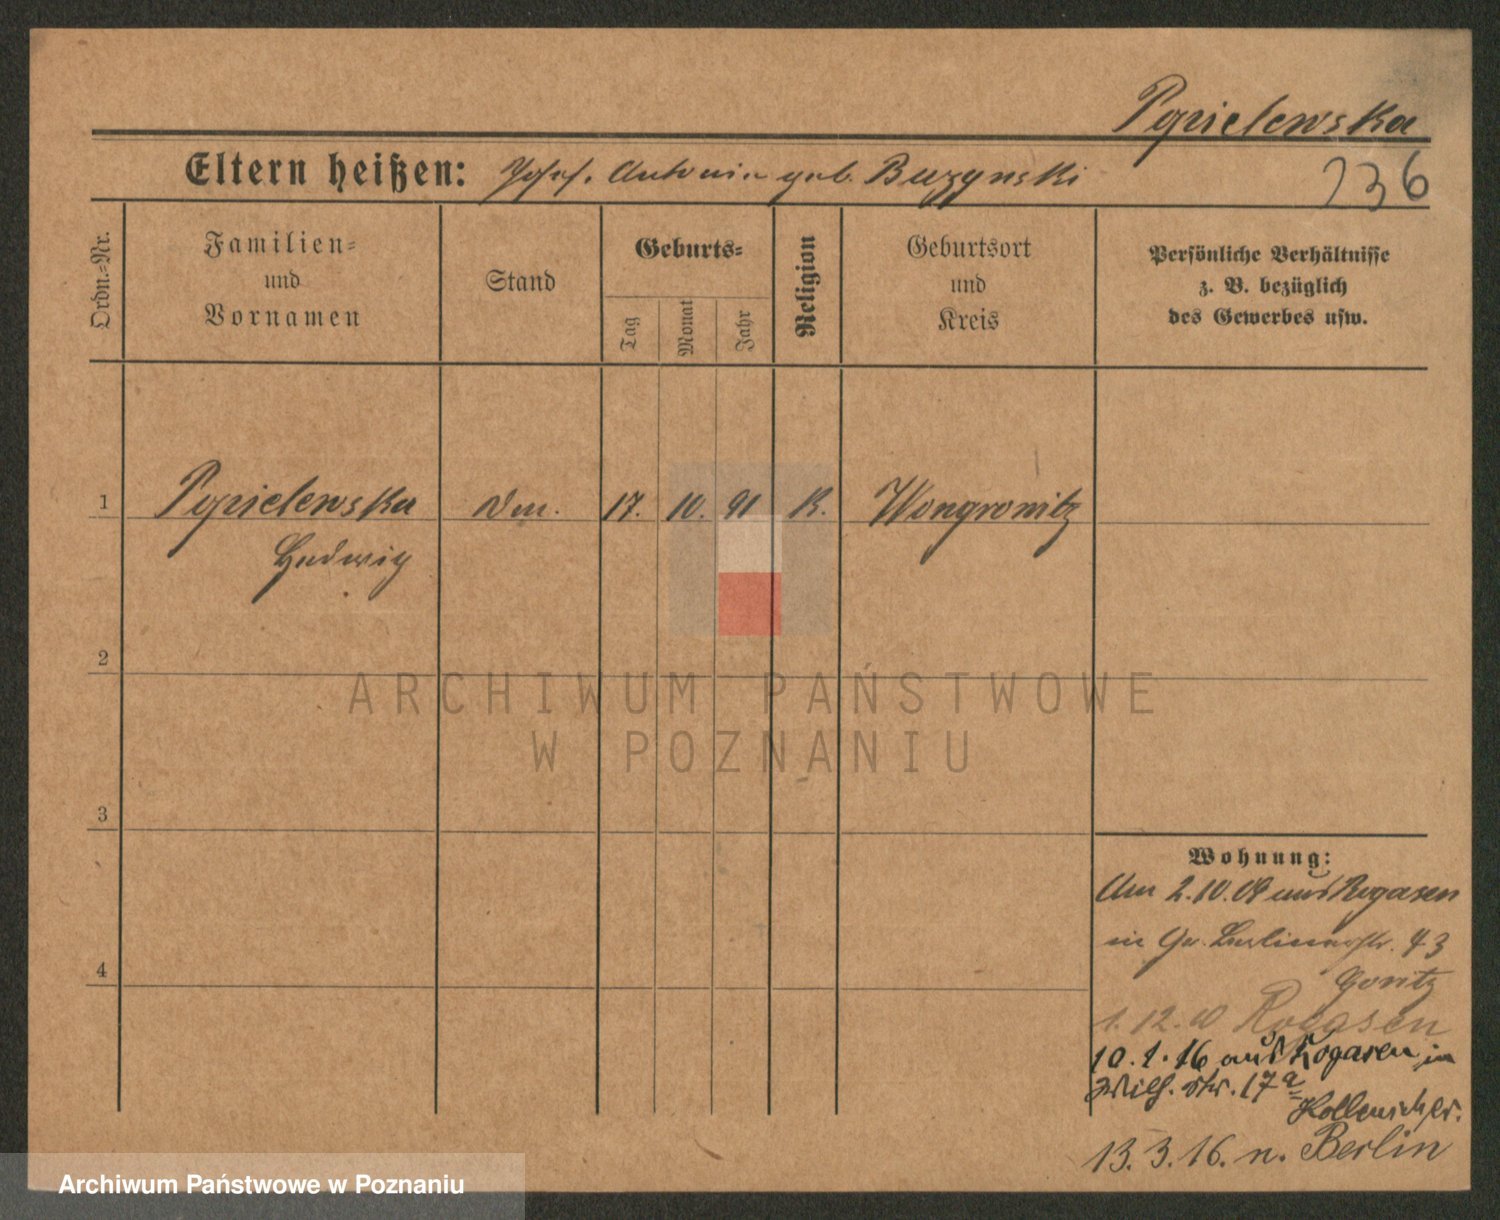 Popielewska
Eltern heißen: Josef. Antonie geb. Buzynski
136
Ordn.=Nr.
Familien=
und
Vornamen
Stand
Geburts=
Tag
Monat
Jahr
Religion
Geburtsort
und
Kreis
Persönliche Verhältnisse
z. B. bezüglich
des Gewerbes usw.
1 Popielewska 17. 10. 91 K. Wongrowitz
Hedwig
2
3
4
Wohnung:
Am 2.10.08 aus Rogasen
in Gr. Berlinerstr. 43
Goritz
1.12.10 Rogasen
10.1.16 aus Rogasen in
Wilh. str. 17a
13.3.16. n. Berlin
ARCHIWUM PAŃSTWOWE
W POZNANIU
Archiwum Państwowe w Poznaniu